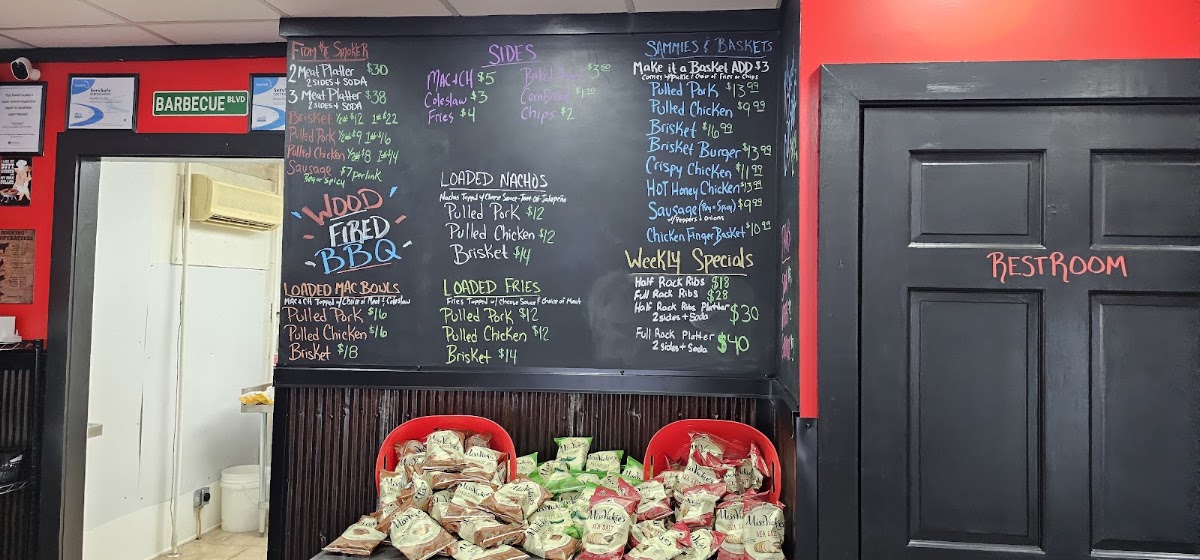 BARBECUE BLVD
FROM THE SMOKER
2 Meat Platter $30
2 SIDES + SODA
3 Meat Platter $38
2 SIDES + SODA
Brisket 1/2# $12 1# $22
Pulled Pork 1/2# $9 1# $16
Pulled Chicken 1/2# $8 1# $14
Sausage $7 per link
Reg or Spicy
WOOD
FIRED
BBQ
LOADED MAC BOWLS
MAC + CH Topped w/ Choice of Meat & Coleslaw
Pulled Pork $16
Pulled Chicken $16
Brisket $18
SIDES
MAC + CH $5
Coleslaw $3
Fries $4
Baked
Cornbread
Chips $2
LOADED NACHOS
Nachos Topped w/ Cheese Sauce - Jalapeño
Pulled Pork $12
Pulled Chicken $12
Brisket $14
LOADED FRIES
Fries Topped w/ Cheese Sauce & Choice of Meat
Pulled Pork $12
Pulled Chicken $12
Brisket $14
SAMMIES & BASKETS
Make it a Basket ADD $3
Comes w/ Pickle / Choice of Fries or Chips
Pulled Pork $13.99
Pulled Chicken $9.99
Brisket $16.99
Brisket Burger $13.99
Crispy Chicken $11.99
HOT Honey Chicken $13.99
Sausage (Reg or Spicy) $9.99
w/ Peppers & Onions
Chicken Finger Basket $10.99
Weekly Specials
Half Rack Ribs $18
Full Rack Ribs $28
Half Rack Ribs Platter $30
2 sides + Soda
Full Rack Platter $40
2 sides + Soda
RESTROOM